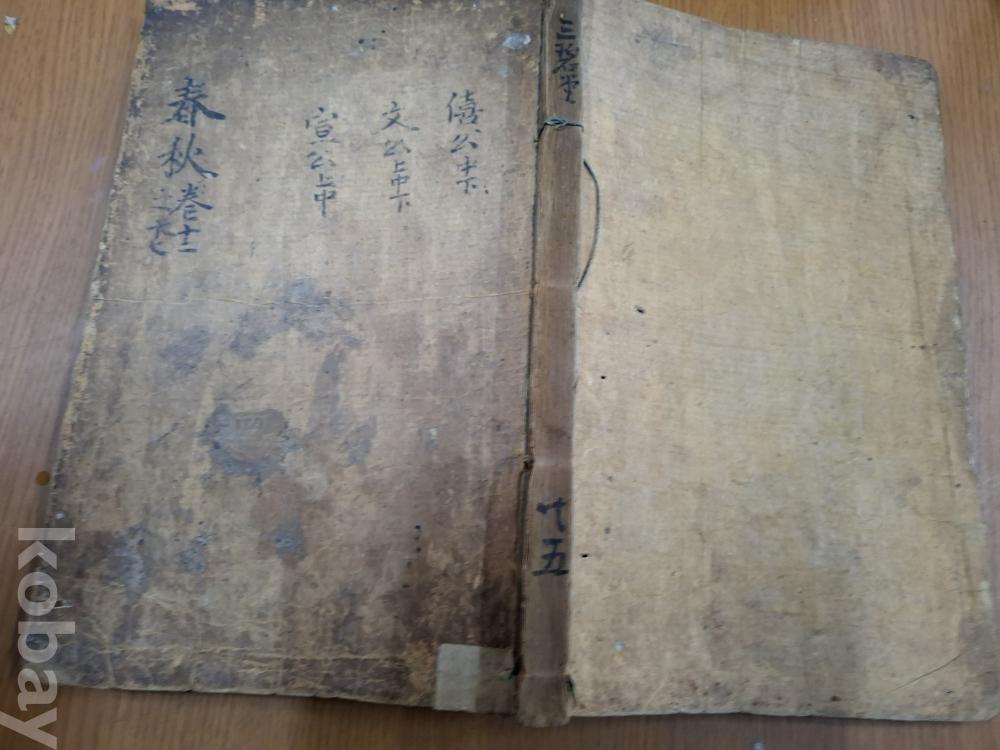 春秋卷十三
之十七
僖公中下
文公上中下
宣公上中
三碧堂
共五
kobay